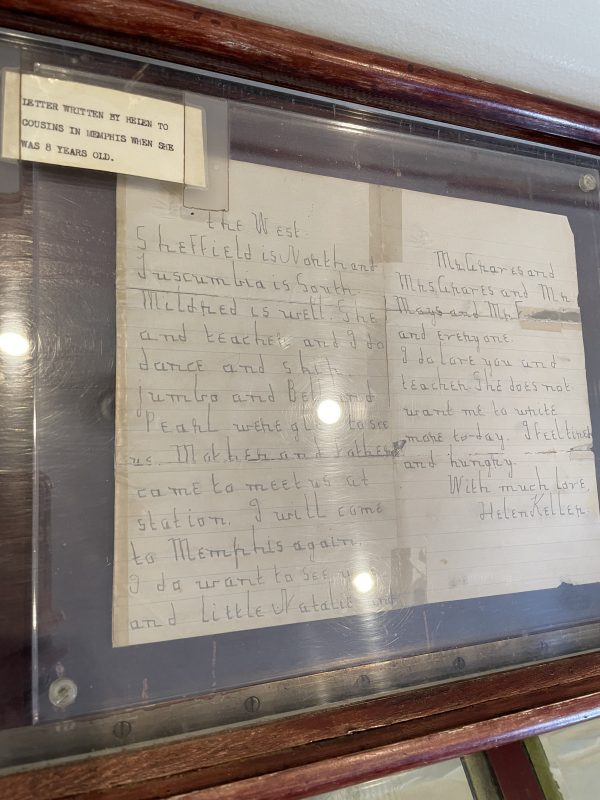 LETTER WRITTEN BY HELEN TO
COUSINS IN MEMPHIS WHEN SHE
WAS 8 YEARS OLD.
the West.
Sheffield is North and
Tuscumbia is South.
Mildred is well. She
and teacher and I do
dance and skip.
Jumbo and Belle and
Pearl were glad to see
us. Mother and father
came to meet us at
station. I will come
to Memphis again.
I do want to see you
and little Natalie and
Mr. Graves and
Mrs. Graves and Mr.
Mays and Mr.
and everyone.
I do love you and
teacher. She does not
want me to write
more to-day. I feel tired
and hungry.
With much love,
Helen Keller.